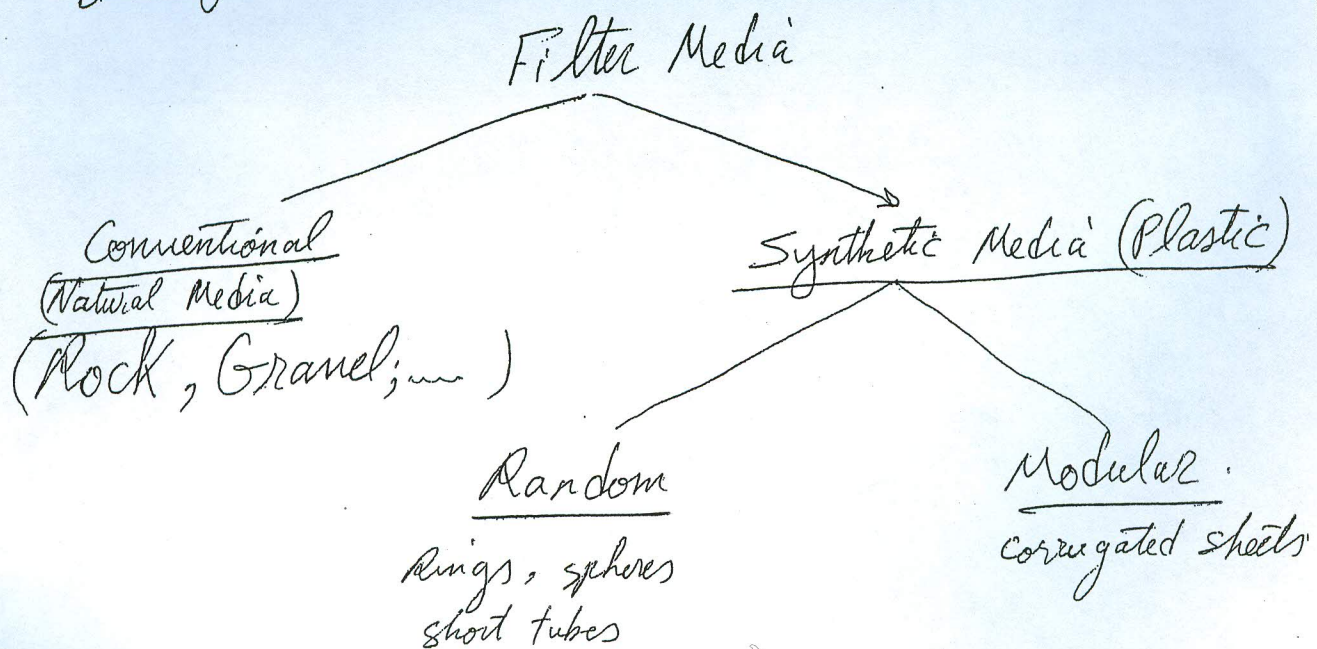 Filter Media
Conventional
(Natural Media)
(Rock, Gravel;.... )
Synthetic Media (Plastic)
Random
Rings, spheres
short tubes
Modular.
corrugated sheets